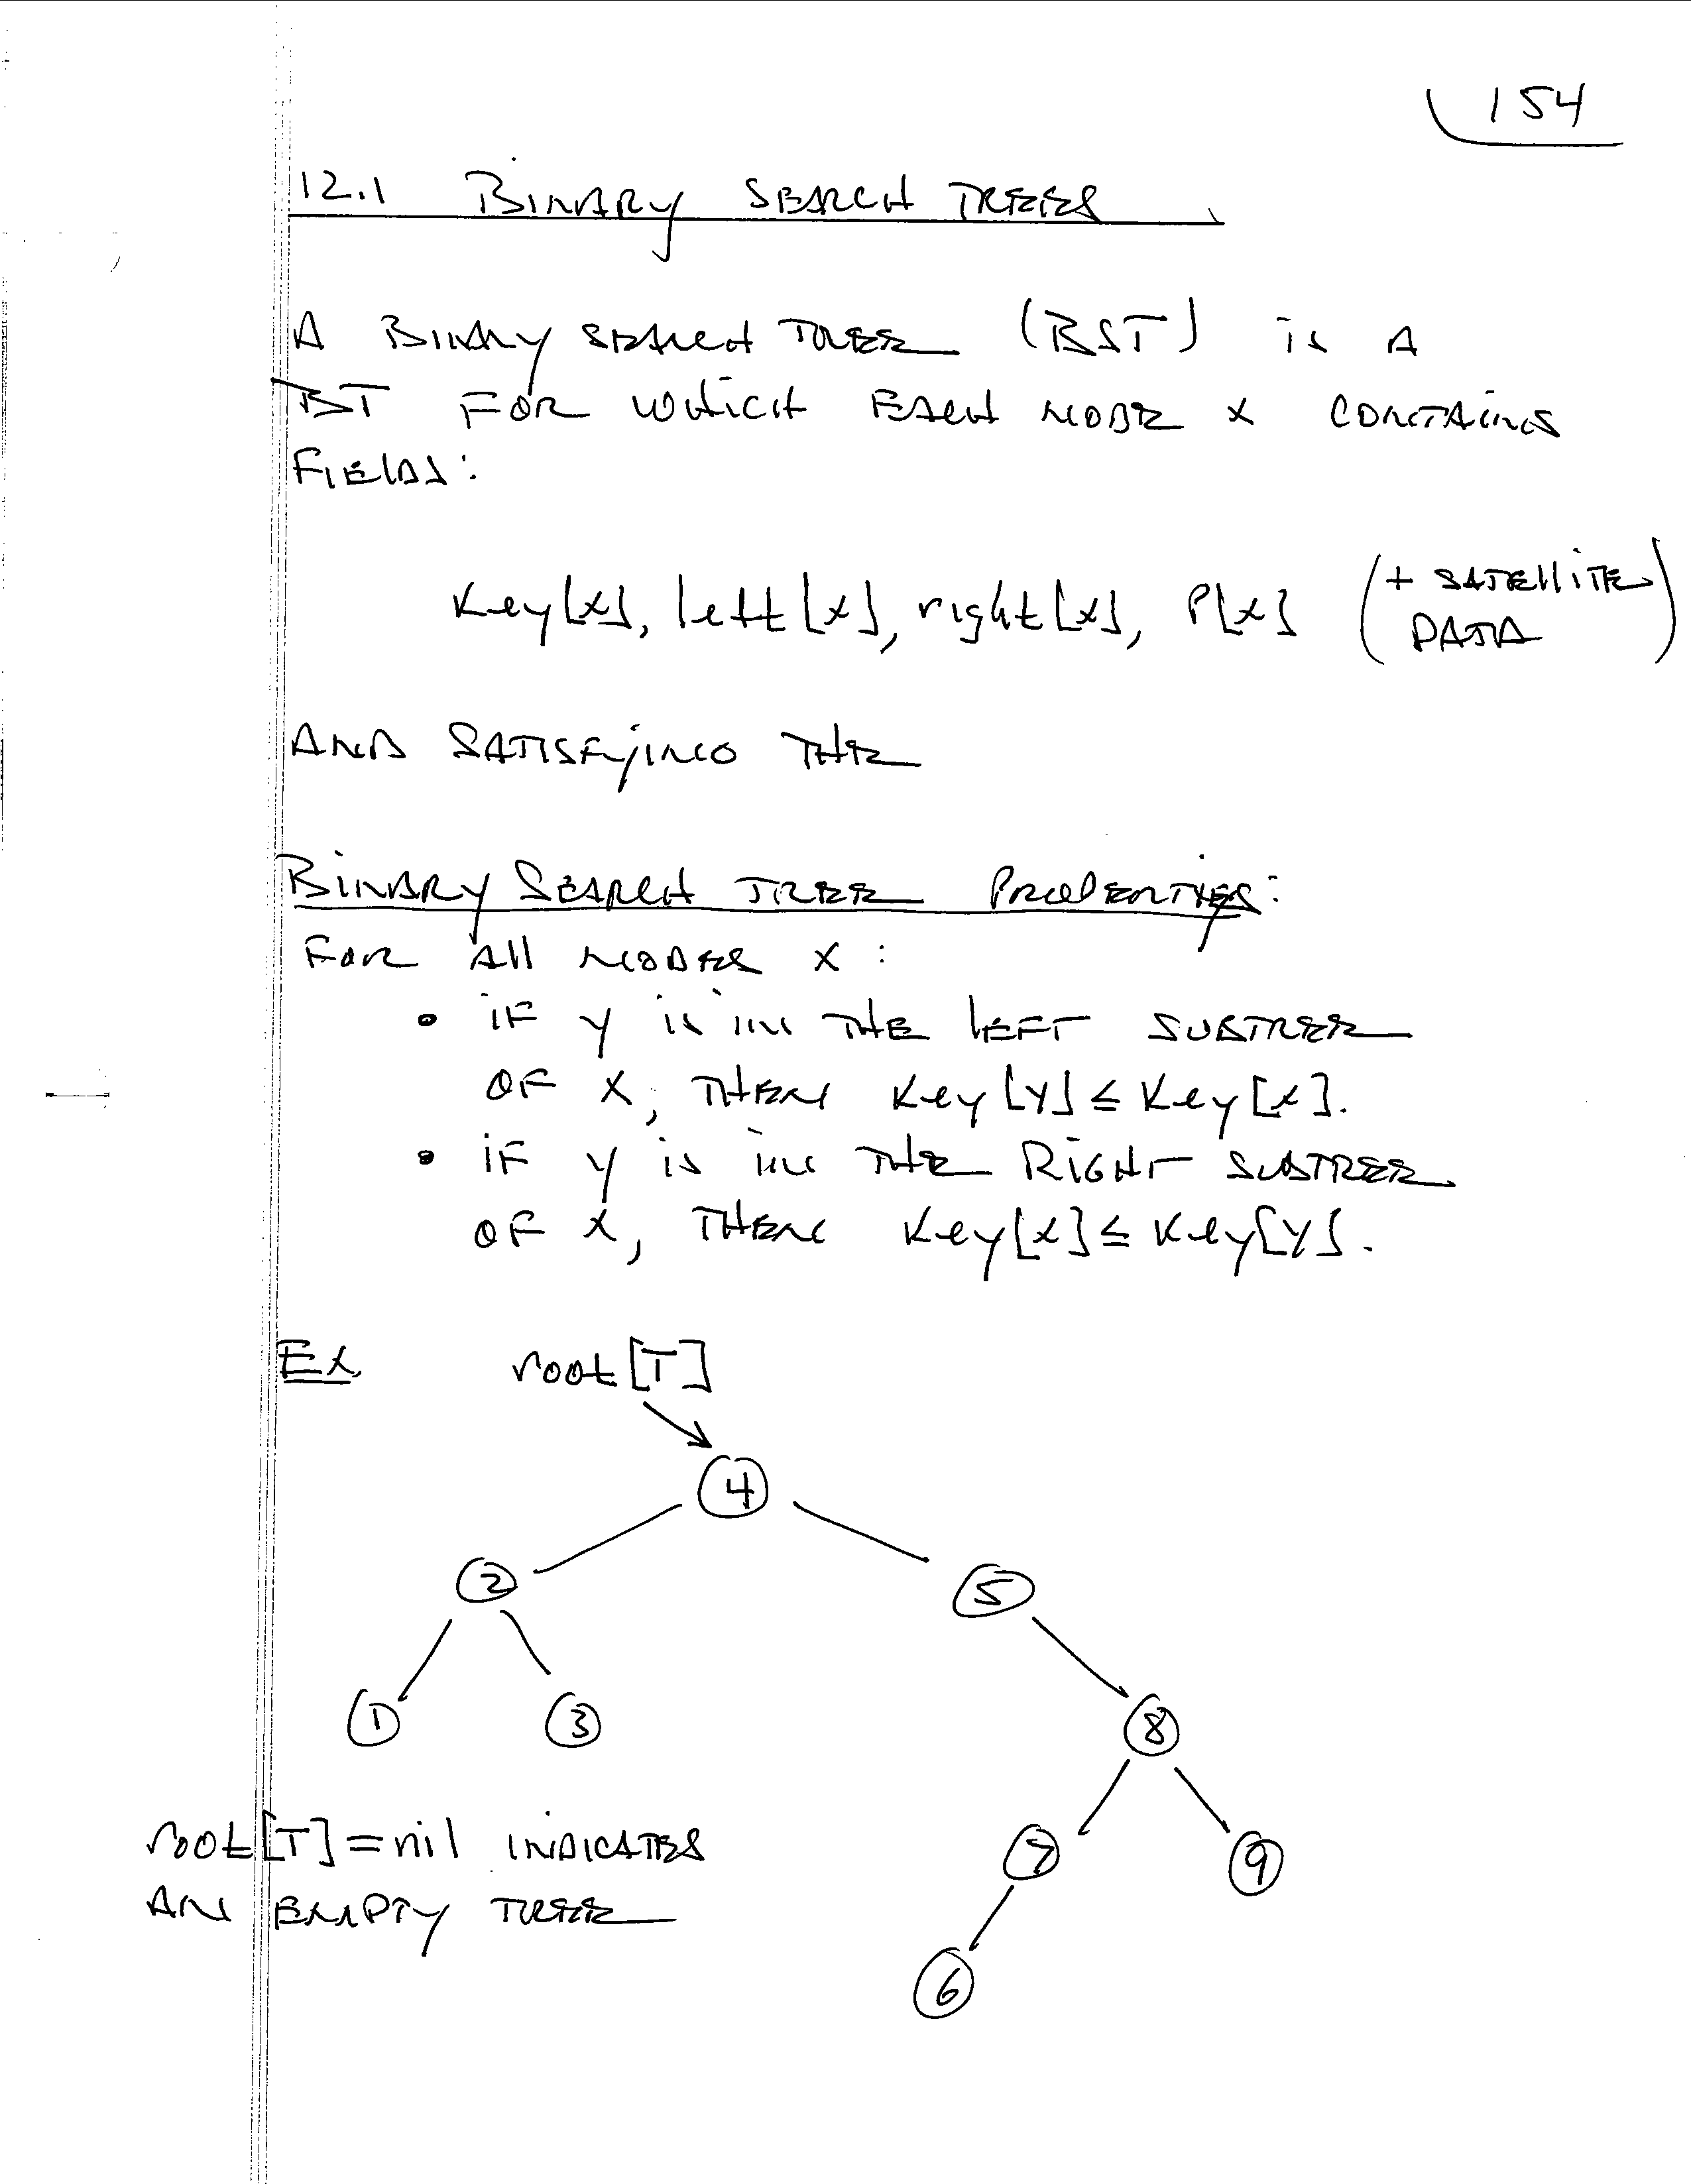 154
12.1 BINARY SEARCH TREES
A BINARY SEARCH TREE (BST) is A
BT FOR WHICH EACH NODE x CONTAINS
FIELDS:
key[x], left[x], right[x], P[x] (+ SATELLITE
DATA)
AND SATISFYING THE
BINARY SEARCH TREE PROPERTIES:
FOR All NODES x :
• iF y is iN THE LEFT SUBTREE
OF x, THEN key[y] ≤ key[x].
• iF y is iN THE RIGHT SUBTREE
OF x, THEN key[x] ≤ key[y].
Ex. root[T]
4
2 5
1 3 8
root[T] = nil INDICATES
7 9
AN EMPTY TREE
6